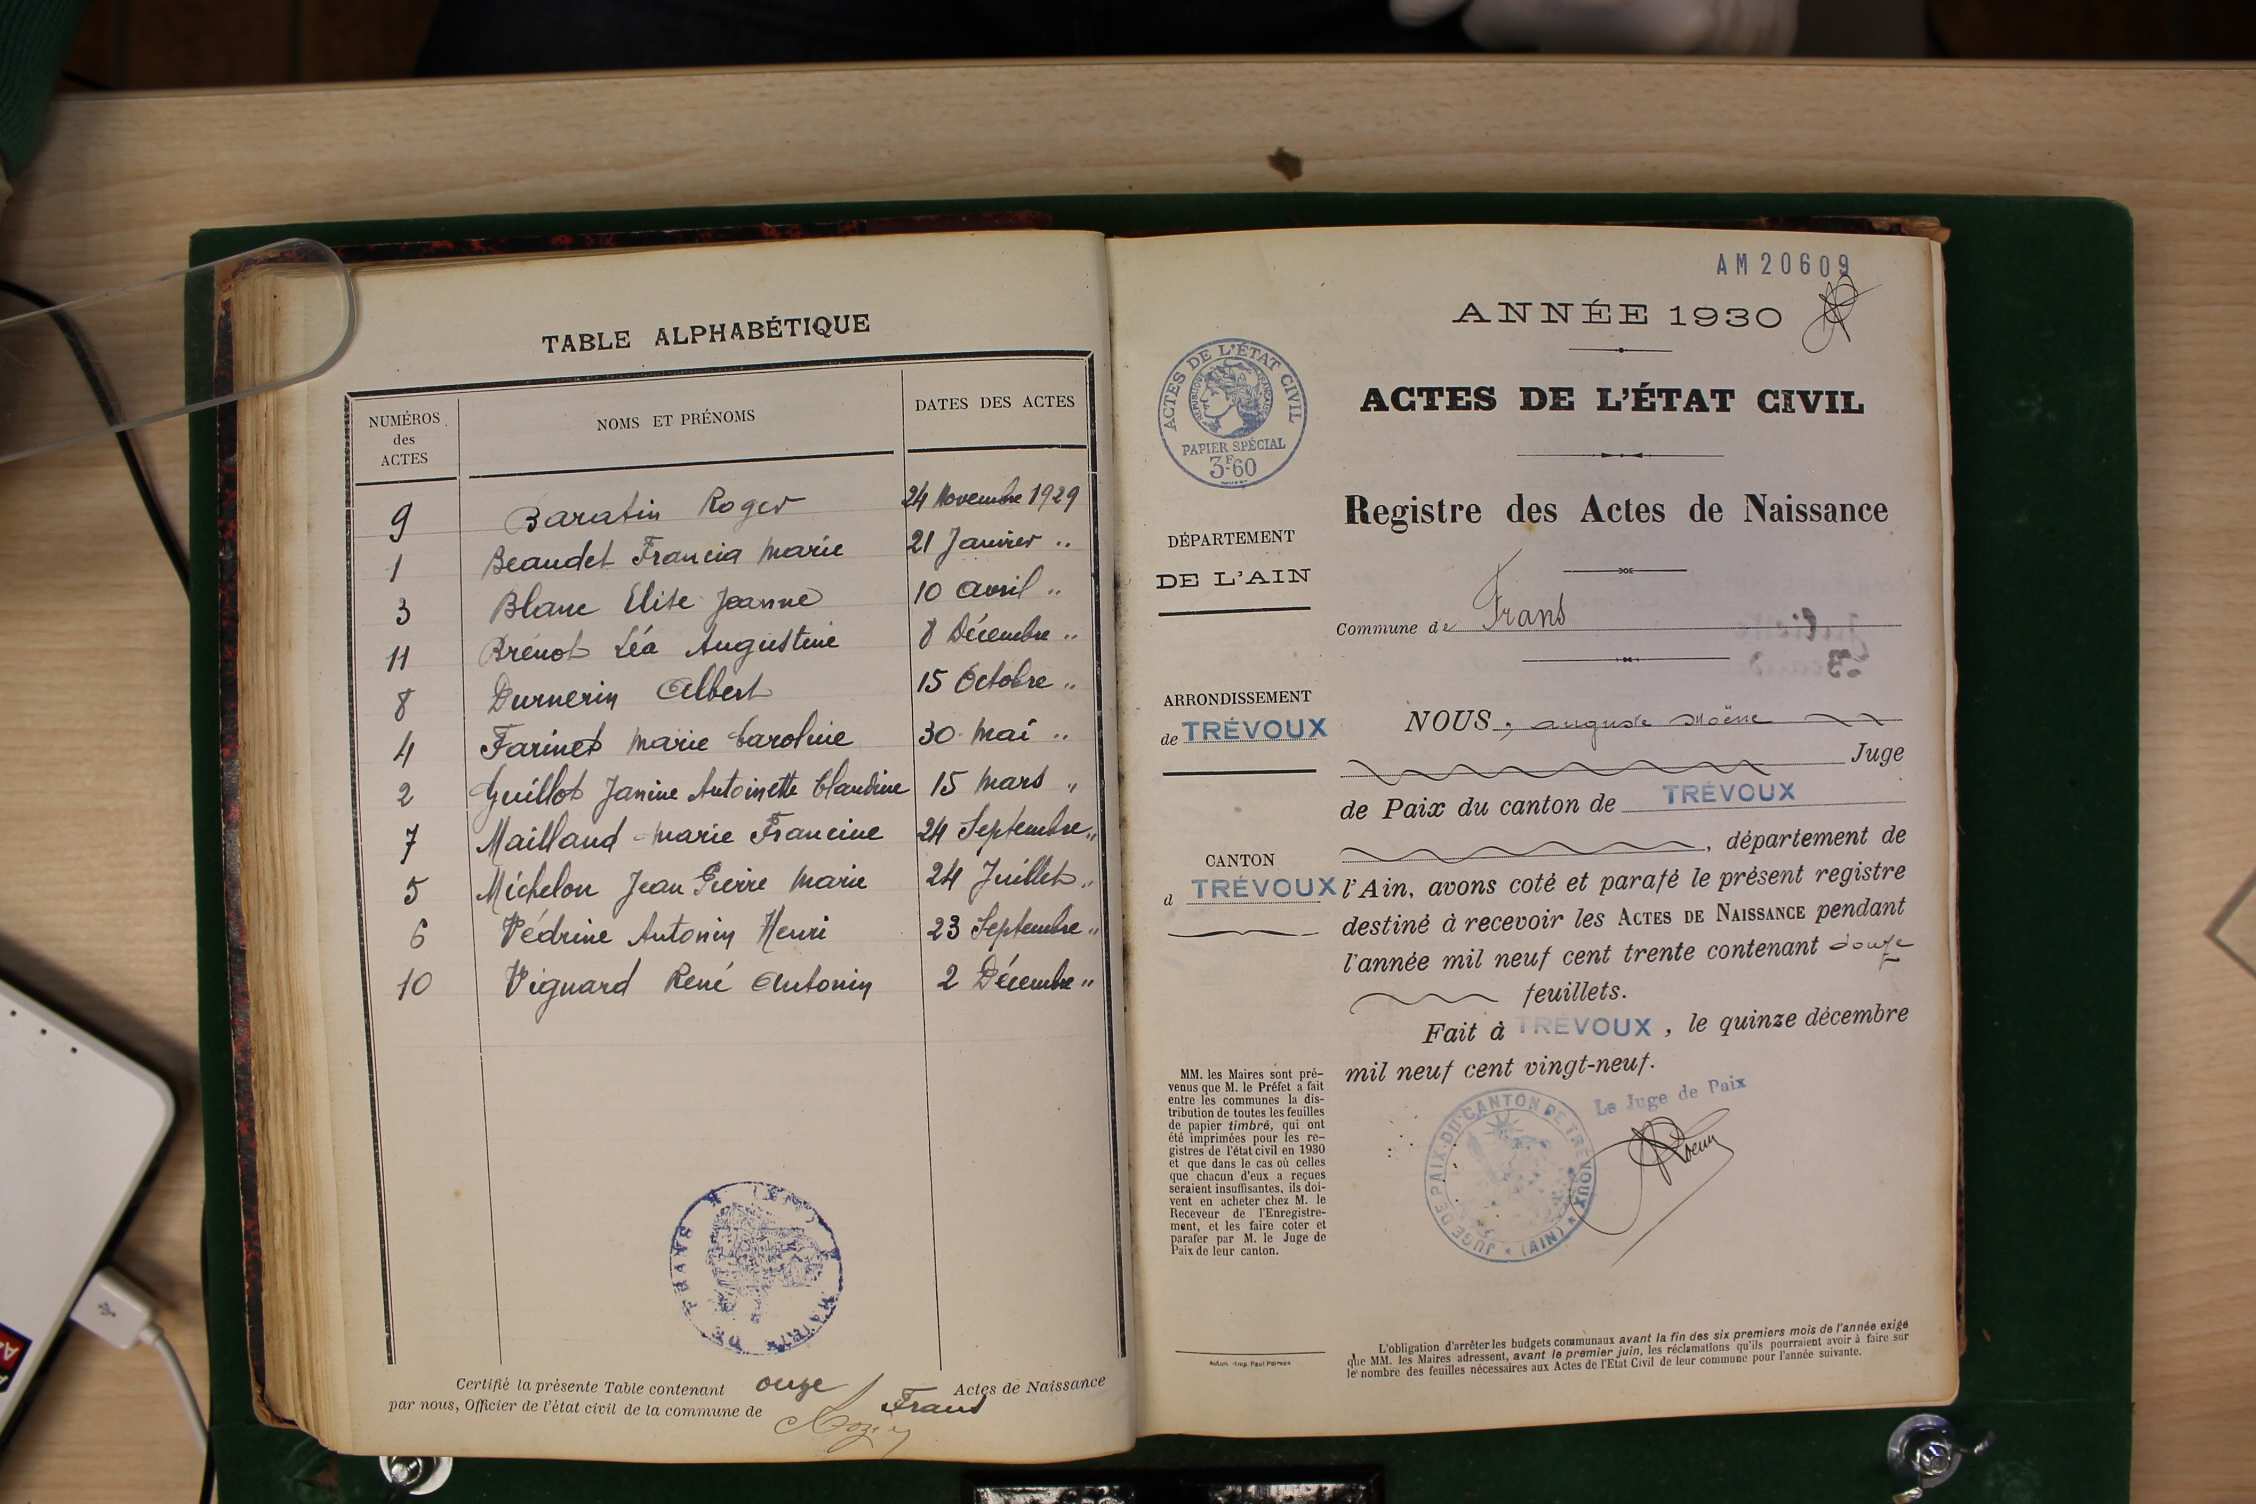 TABLE ALPHABÉTIQUE
NUMÉROS des ACTES
NOMS ET PRÉNOMS
DATES DES ACTES
9 Baratin Roger 24 Novembre 1929
1 Beaudet Francia Marie 21 Janvier "
3 Blanc Elise Jeanne 10 Avril "
11 Brénot Léa Augustine 8 Décembre "
8 Durnerin Albert 15 Octobre "
4 Farinet Marie Caroline 30 Mai "
2 Guillot Janine Antoinette Claudine 15 Mars "
7 Mailland Marie Francine 24 Septembre "
5 Michelon Jean Pierre Marie 24 Juillet "
6 Védrine Antonin Henri 23 Septembre "
10 Viguard René Antonin 2 Décembre "
MAIRIE DE FRANS
Certifié la présente Table contenant onze Actes de Naissance
par nous, Officier de l'état civil de la commune de Frans
AM20609
ANNÉE 1930
ACTES DE L'ÉTAT CIVIL
RÉPUBLIQUE FRANÇAISE
PAPIER SPÉCIAL
3F60
ACTES DE L'ÉTAT CIVIL
Registre des Actes de Naissance
DÉPARTEMENT
DE L'AIN
Commune de Frans
ARRONDISSEMENT
de TRÉVOUX
CANTON
d TRÉVOUX
NOUS, Auguste Moëne
Juge
de Paix du canton de TRÉVOUX
, département de
l'Ain, avons coté et parafé le présent registre
destiné à recevoir les ACTES DE NAISSANCE pendant
l'année mil neuf cent trente contenant douze
feuillets.
Fait à TRÉVOUX, le quinze décembre
mil neuf cent vingt-neuf.
Le Juge de Paix
JUGE DE PAIX DU CANTON DE TRÉVOUX (AIN)
MM. les Maires sont pré-
venus que M. le Préfet a fait
entre les communes la dis-
tribution de toutes les feuilles
de papier timbré, qui ont
été imprimées pour les re-
gistres de l'état civil en 1930
et que dans le cas où celles
que chacun d'eux a reçues
seraient insuffisantes, ils doi-
vent en acheter chez M. le
Receveur de l'Enregistre-
ment, et les faire coter et
parafer par M. le Juge de
Paix de leur canton.
L'obligation d'arrêter les budgets communaux avant la fin des six premiers mois de l'année exige
que MM. les Maires adressent, avant le premier juin, les réclamations qu'ils pourraient avoir à faire sur
le nombre des feuilles nécessaires aux Actes de l'Etat Civil de leur commune pour l'année suivante.